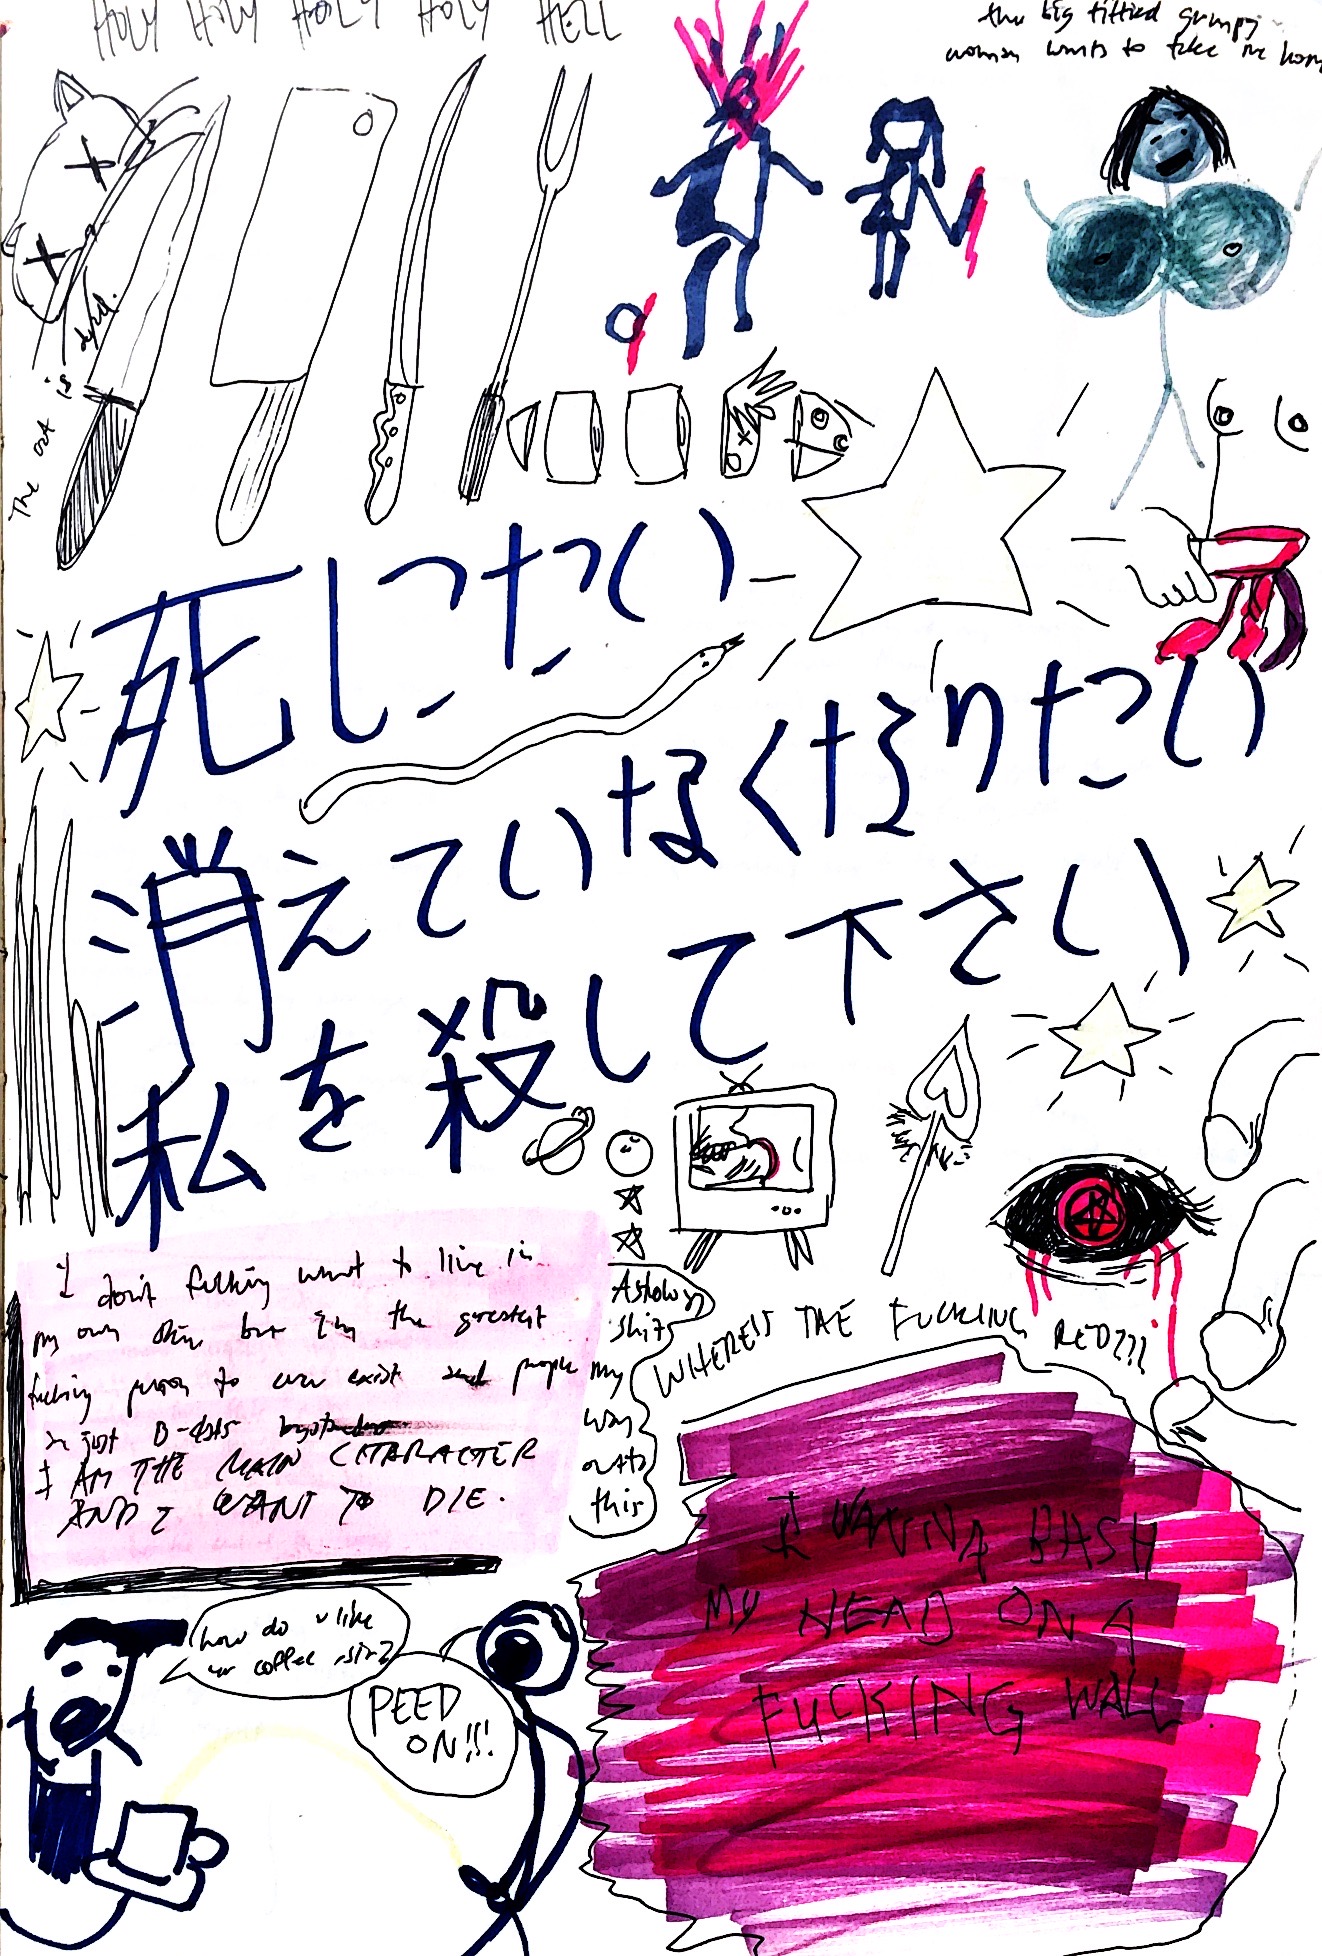 HOLY HOLY HOLY HOLY HELL
the big tittied grumpy
woman wants to take me home
The cat is dead.
死にたい
消えていなくなりたい
私を殺して下さい
I don't fucking want to live in
my own skin but I'm the greatest
fucking person to ever exist and people
I AM THE MAIN CHARACTER
AND I WANT TO DIE.
Astrology
shit
my
way
outta
this
WHERE'S THE FUCKING RED???
I WANNA BASH
MY HEAD ON A
FUCKING WALL.
how do u like
ur coffee, sir?
PEED
ON!!!